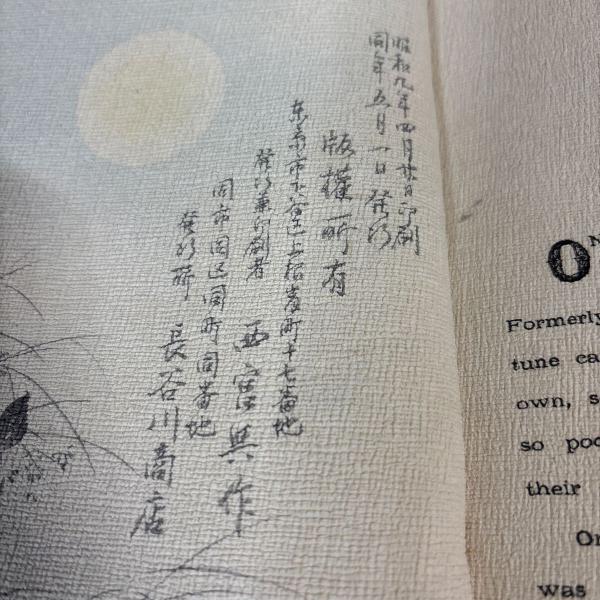 昭和九年四月廿日印刷
同年五月一日発行
版権所有
東京市下谷区上根岸町十七番地
発行兼印刷者 西宮與作
同市同区同町同番地
発行所 長谷川商店
O
Formerly
own, s
so poo
their
was